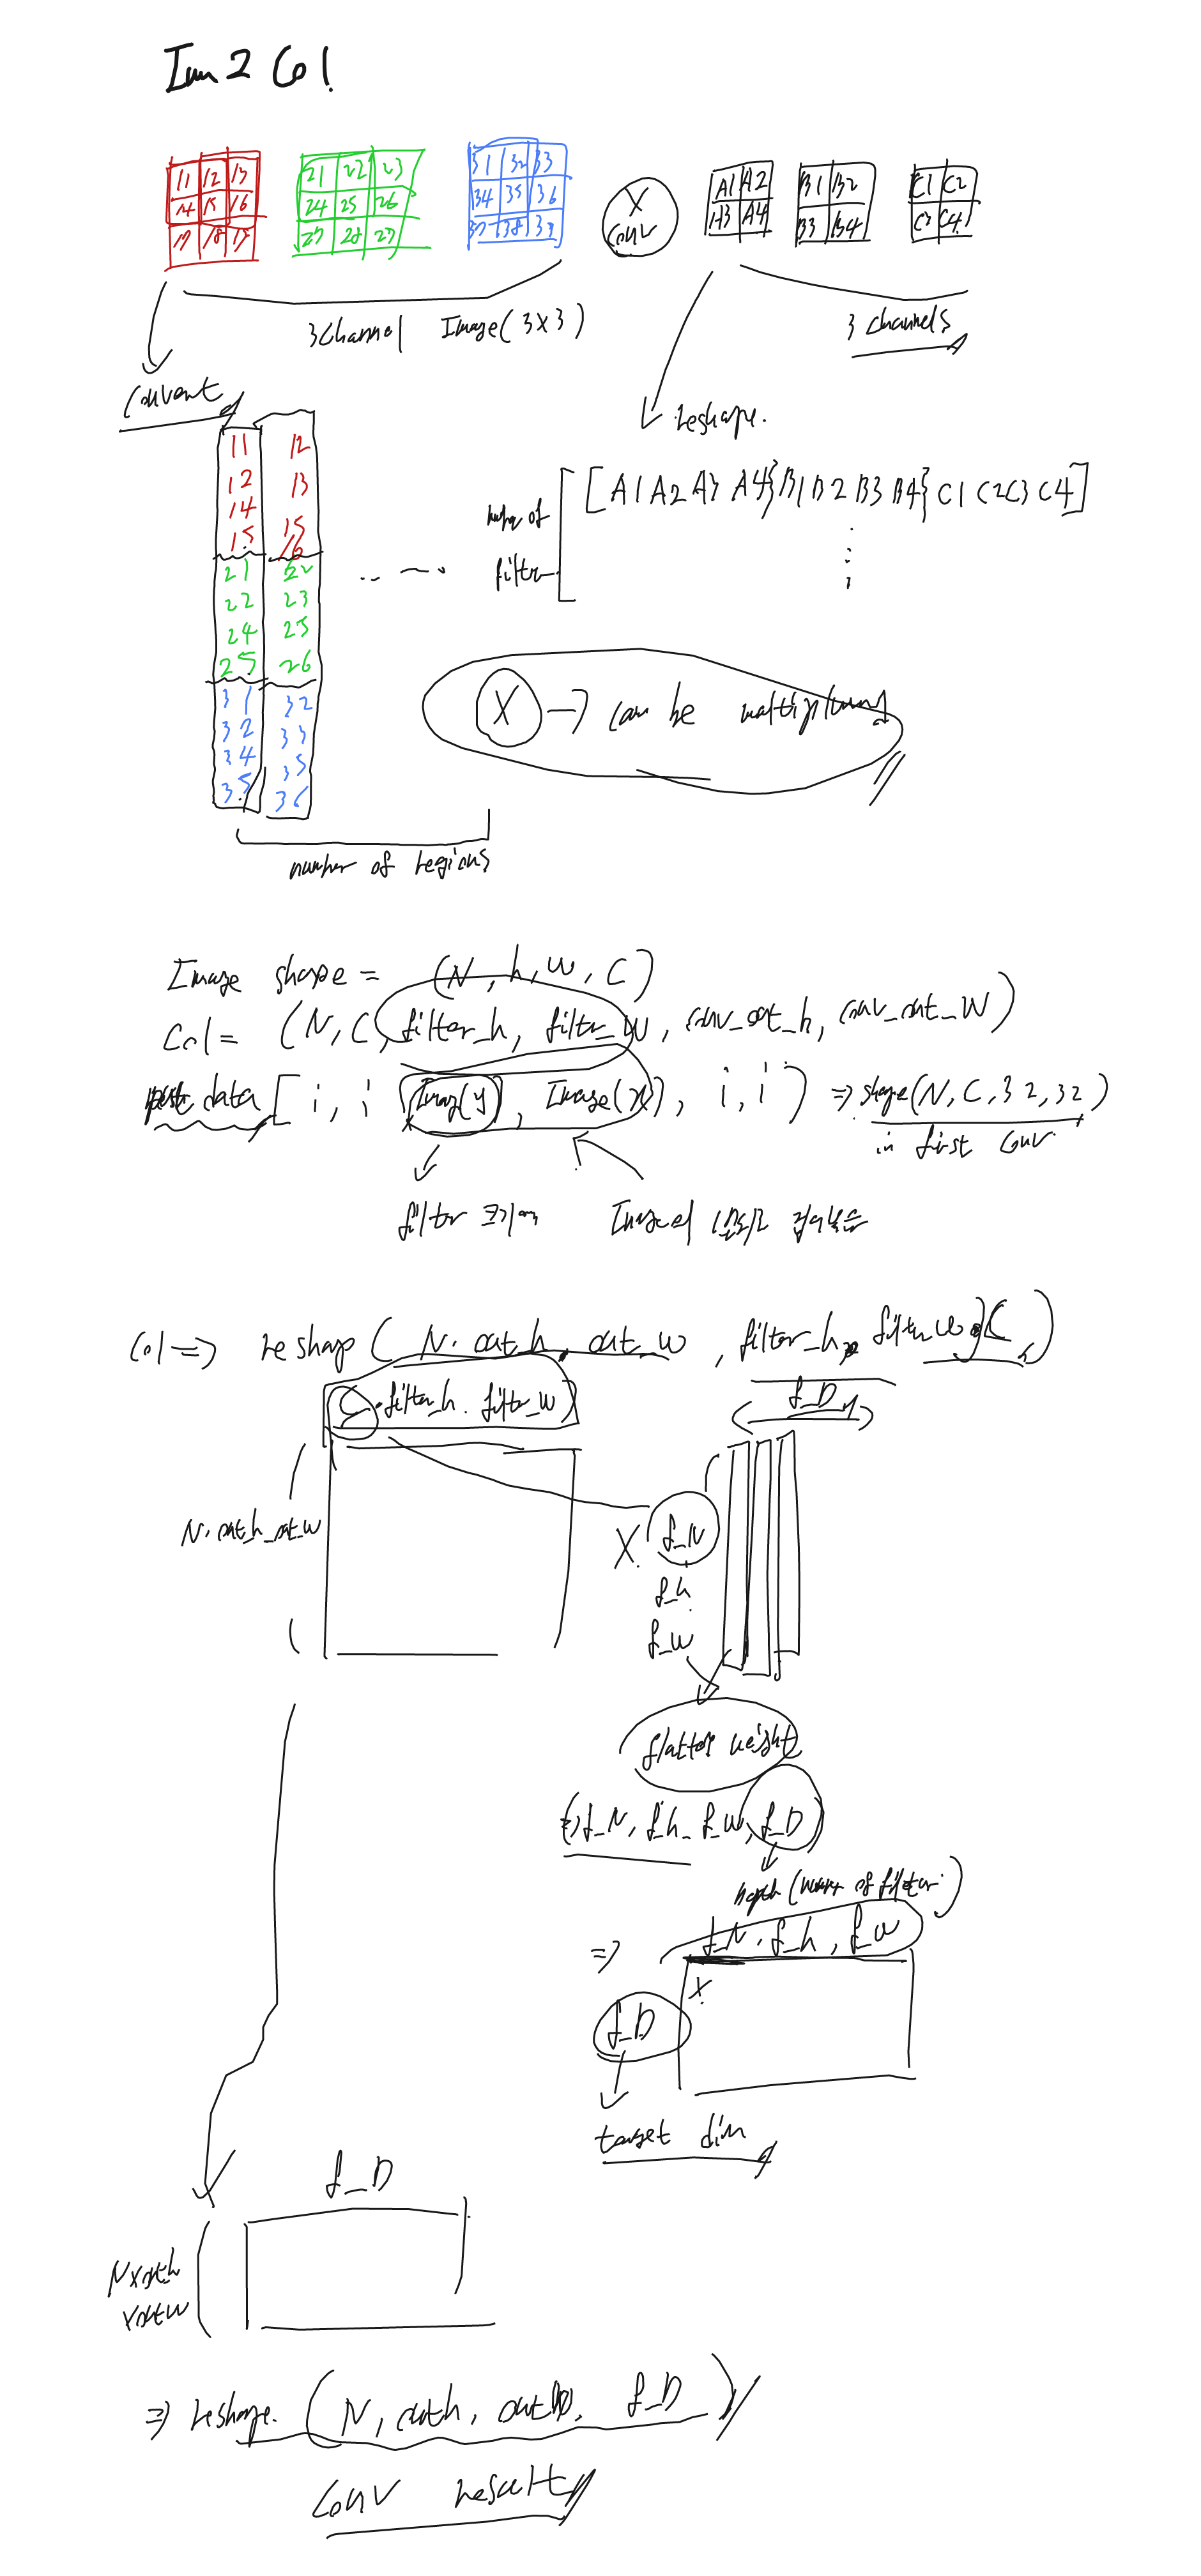 Im2Col.
11 12 13 21 22 23 31 32 33 A1 A2 B1 B2 C1 C2
14 15 16 24 25 26 34 35 36 X conv A3 A4 B3 B4 C3 C4
17 18 19 27 28 29 37 38 39
3channel Image(3X3)
3 channels
convert
reshape.
11 12
12 13
14 15
15 16
21 22
22 23
24 25
25 26
31 32
32 33
34 35
35 36
[A1 A2 A3 A4 B1 B2 B3 B4 C1 C2 C3 C4]
of
filter
X → can be
number of regions
Image shape = (N, h, w, C)
Col = (N, C, filter_h, filter_w, conv_out_h, conv_out_w)
data [i, i Image(y), Image(x), i, i] ⇒ shape(N, C, 32, 32)
in first conv.
filter 크기만
Image의
Col ⇒ reshape( N. out_h. out_w , filter_h, filter_w C )
C. filter_h. filter_w
f_D
N. out_h_out_w
X f_N
f_h
f_w
flatten weight
⇒ f_N, f_h_ f_w, f_D
Depth (number of filter)
⇒ f_N. f_h, f_w
X
f_D
target dim
f_D
NXouth
Xoutw
⇒ reshape. (N, outh, outw, f_D)
Conv result